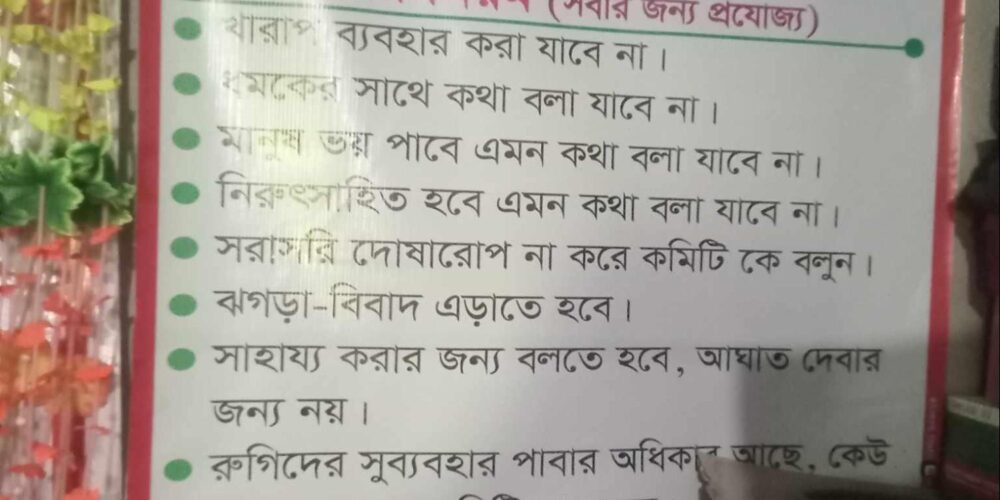 (সবার জন্য প্রযোজ্য)
খারাপ ব্যবহার করা যাবে না।
ধমকের সাথে কথা বলা যাবে না।
মানুষ ভয় পাবে এমন কথা বলা যাবে না।
নিরুৎসাহিত হবে এমন কথা বলা যাবে না।
সরাসরি দোষারোপ না করে কমিটি কে বলুন।
ঝগড়া-বিবাদ এড়াতে হবে।
সাহায্য করার জন্য বলতে হবে, আঘাত দেবার
জন্য নয়।
রুগিদের সুব্যবহার পাবার অধিকার আছে, কেউ